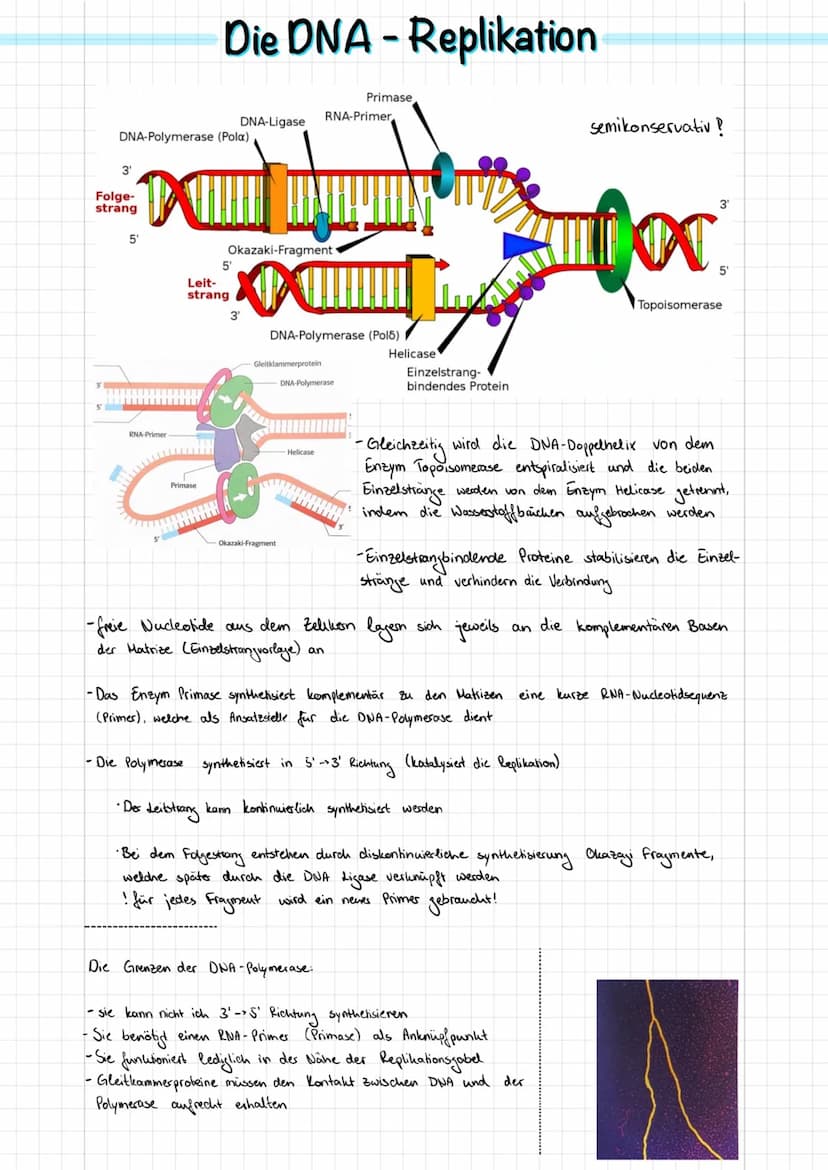 Die DNA - Replikation
Primase
DNA-Ligase
RNA-Primer
semikonservativ!
DNA-Polymerase (Polα)
3'
Folge-
strang
3'
5'
Okazaki-Fragment
5'
5'
Leit-
strang
3'
Topoisomerase
DNA-Polymerase (Polδ)
Helicase
Einzelstrang-
bindendes Protein
Gleitklammerprotein
DNA-Polymerase
3'
5'
RNA-Primer
Helicase
Primase
3'
5'
Okazaki-Fragment
- Gleichzeitig wird die DNA-Doppelhelix von dem
Enzym Topoisomerase entspiralisiert und die beiden
Einzelstränge werden von dem Enzym Helicase getrennt,
indem die Wasserstoffbrücken aufgebrochen werden
- Einzelstrangbindende Proteine stabilisieren die Einzel-
stränge und verhindern die Verbindung
- freie Nucleotide aus dem Zellkern lagern sich jeweils an die komplementären Basen
der Matrize (Einzelstrangvorlage) an
- Das Enzym Primase synthetisiert komplementär zu den Matrizen eine kurze RNA-Nucleotidsequenz
(Primer), welche als Ansatzstelle für die DNA-Polymerase dient
- Die Polymerase synthetisiert in 5'→3' Richtung (katalysiert die Replikation)
· Der Leitstrang kann kontinuierlich synthetisiert werden
· Bei dem Folgestrang entstehen durch diskontinuierliche synthetisierung Okazagi Fragmente,
welche später durch die DNA Ligase verknüpft werden
! für jedes Fragment wird ein neues Primer gebraucht!
Die Grenzen der DNA-Polymerase:
- sie kann nicht ich 3'→5' Richtung synthetisieren
- Sie benötigt einen RNA-Primer (Primase) als Anknüpfpunkt
- Sie funktioniert lediglich in der Nähe der Replikationsgabel
- Gleitkammerproteine müssen den Kontakt zwischen DNA und der
Polymerase aufrecht erhalten